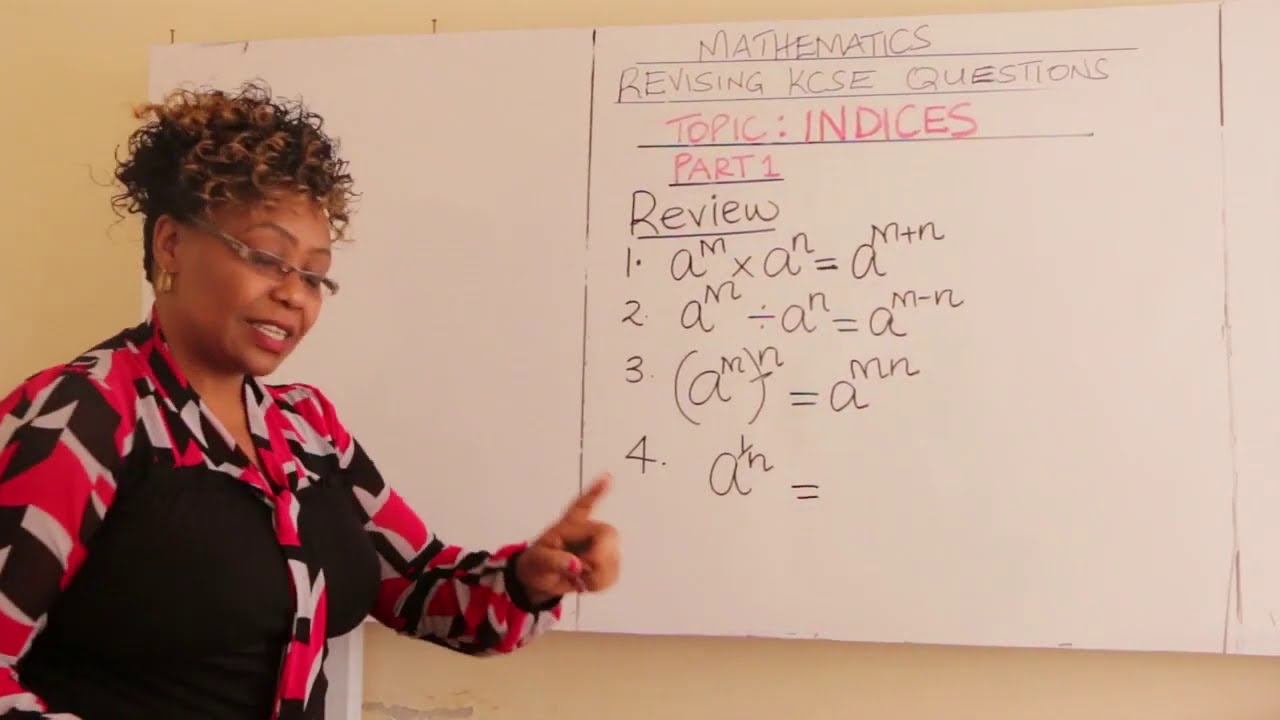 MATHEMATICS
REVISING KCSE QUESTIONS
TOPIC: INDICES
PART 1
Review
1. aᵐ × aⁿ = aᵐ⁺ⁿ
2. aᵐ ÷ aⁿ = aᵐ⁻ⁿ
3. (aᵐ)ⁿ = aᵐⁿ
4. a^(1/n) =